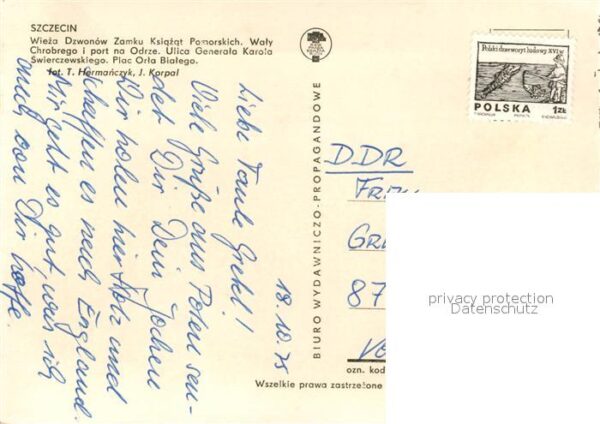 SZCZECIN
Wieża Dzwonów Zamku Książąt Pomorskich. Wały
Chrobrego i port na Odrze. Ulica Generała Karola
Świerczewskiego. Plac Orła Białego.
fot. T. Hermańczyk, J. Korpal
Liebe Tante Gretel!
Viele Grüße aus Polen sen-
det Dir Dein Jochen
Wir holen hier Holz und
schaffen es nach England.
Mir geht es gut, was ich
auch von Dir hoffe.
18.10.75
BIURO WYDAWNICZO-PROPAGANDOWE
Polski drzeworyt ludowy XVI w.
POLSKA 1 ZŁ
DDR
87
ozn. kod
Wszelkie prawa zastrzeżone
privacy protection
Datenschutz